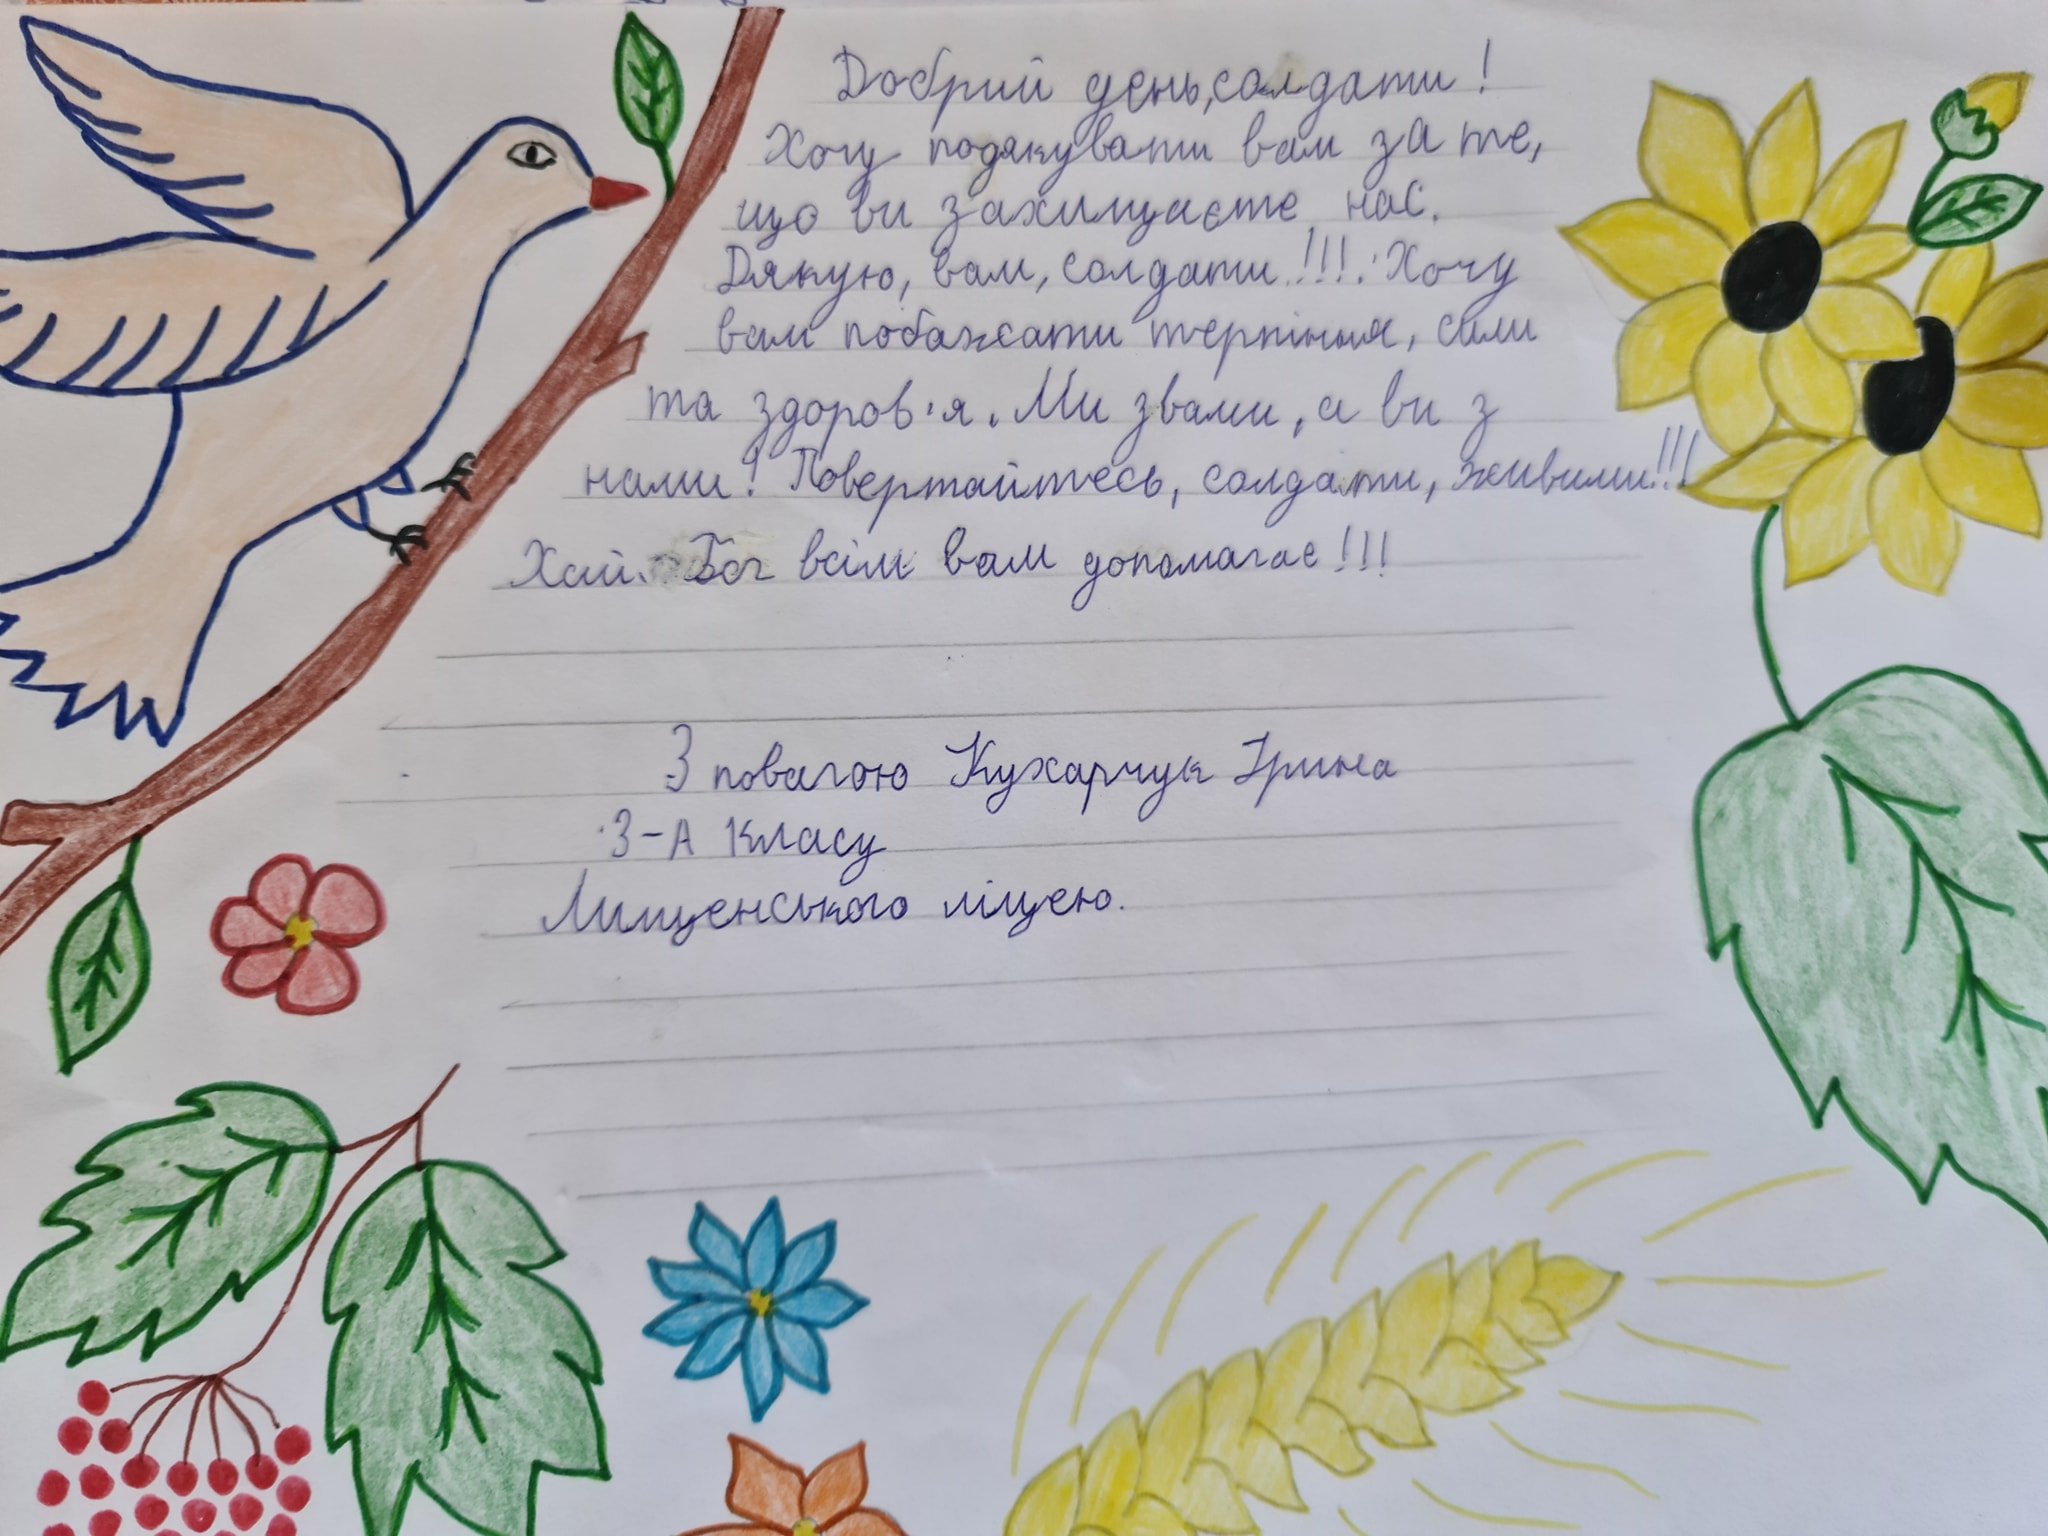 Добрий день, солдати!
Хочу подякувати вам за те,
що ви захищаєте нас.
Дякую, вам, солдати!!!. Хочу
вам побажати терпіння, сили
та здоров'я. Ми звами, а ви з
нами! Повертайтесь, солдати, живими!!!
Хай Бог всім вам допомагає!!!
З повагою Кухарчук Ірина
3-А класу
Лищенського ліцею.